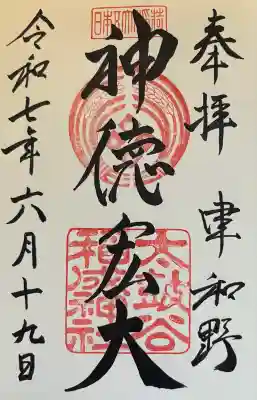 奉拝 津和野
神徳宏大
太皷谷
稲成神社
令和七年六月十九日